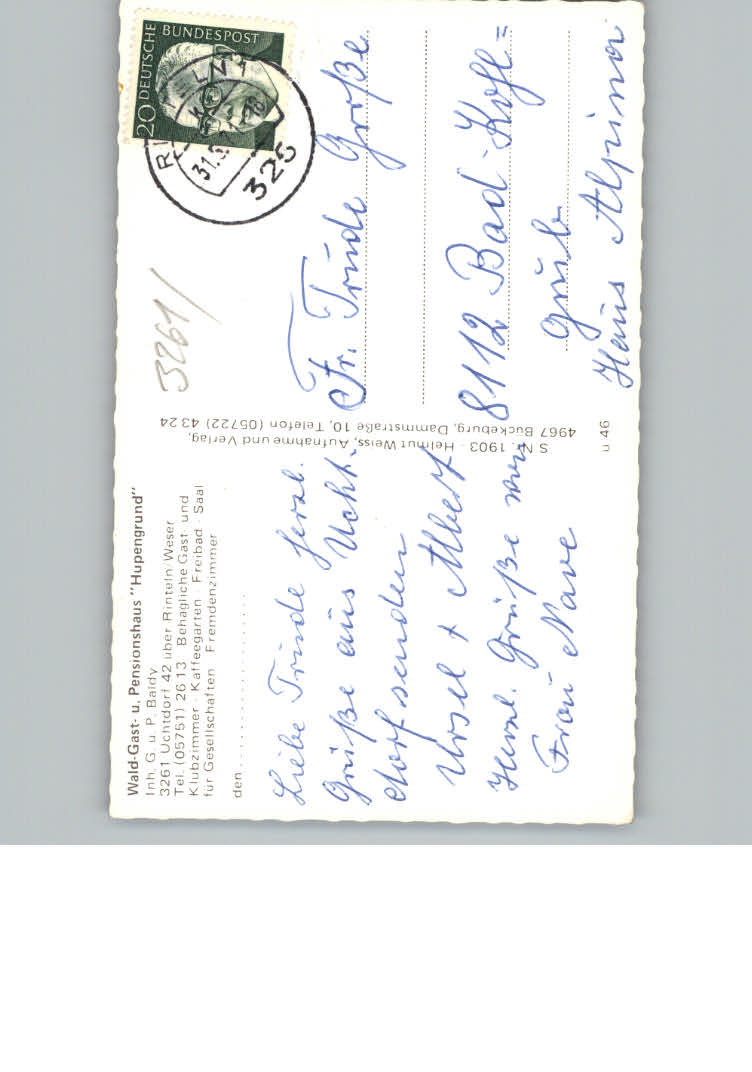 Wald-Gast- u. Pensionshaus "Hupengrund"
Inh. G. u. P. Baldy
3261 Uchtdorf 42 über Rinteln/Weser
Tel. (05751) 2613 Behagliche Gast- und
Klubzimmer · Kaffeegarten · Freibad · Saal
für Gesellschaften · Fremdenzimmer
den
Liebe Trude herzl.
Grüße aus Ucht-
dorf senden
Ursel + Albert
Herzl. Grüße von
Frau Nave
S Nr. 1903 · Helmut Weiss, Aufnahme und Verlag,
4967 Bückeburg, Dammstraße 10, Telefon (05722) 4324
n 46
3261/
20 DEUTSCHE BUNDESPOST
325
Fr. Trude Große
8112 Bad Kohl=
grub
Haus Alpina